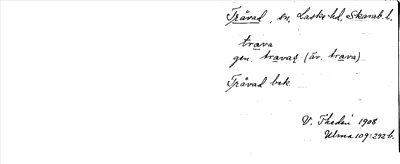 Tråvad, sn, Laske hd. Skarab. l.
trava
gen. travas (äv. trava)
Tråvad bek.
V. Ekedén 1908
Ulma 109:292 b.